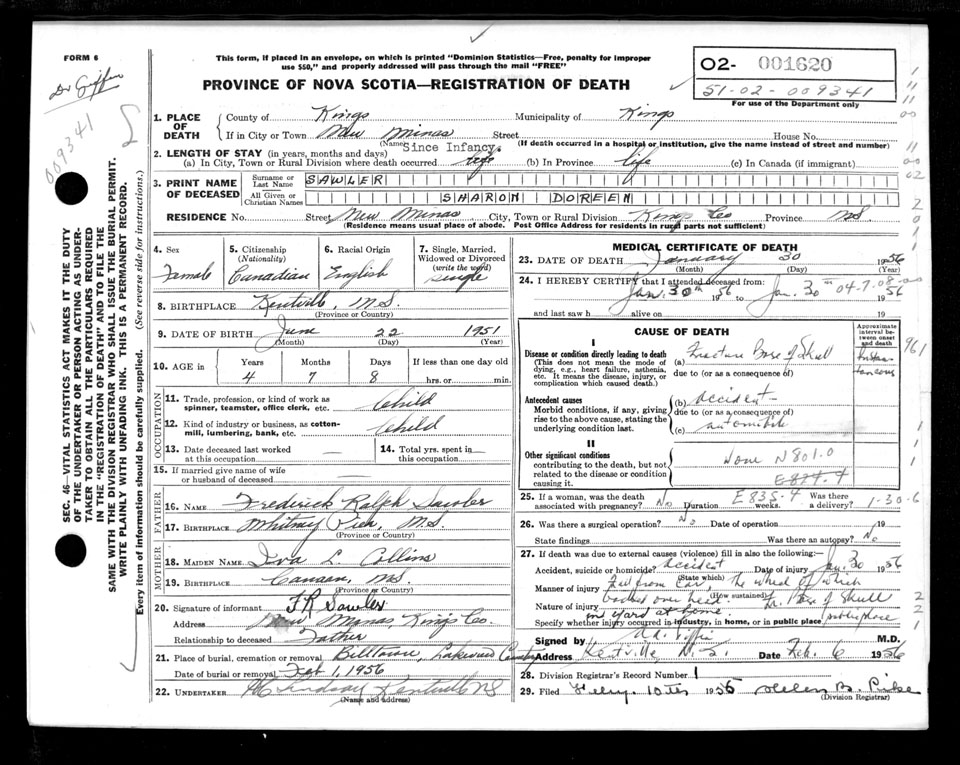 FORM 6
Dr Giffin
009341
This form, if placed in an envelope, on which is printed "Dominion Statistics—Free, penalty for improper
use $50," and properly addressed will pass through the mail "FREE"
PROVINCE OF NOVA SCOTIA—REGISTRATION OF DEATH
O2- 001620
51-02-009341
For use of the Department only
SEC. 46—VITAL STATISTICS ACT MAKES IT THE DUTY
OF THE UNDERTAKER OR PERSON ACTING AS UNDER-
TAKER TO OBTAIN ALL THE PARTICULARS REQUIRED
IN THE "REGISTRATION OF DEATH" AND TO FILE THE
SAME WITH THE DIVISION REGISTRAR WHO SHALL ISSUE THE BURIAL PERMIT.
WRITE PLAINLY WITH UNFADING INK. THIS IS A PERMANENT RECORD.
Every item of information should be carefully supplied. (See reverse side for instructions.)
1. PLACE OF DEATH
County of Kings Municipality of Kings
If in City or Town New Minas Street House No.
(Name) (If death occurred in a hospital or institution, give the name instead of street and number)
Since Infancy.
2. LENGTH OF STAY (in years, months and days)
(a) In City, Town or Rural Division where death occurred life (b) In Province life (c) In Canada (if immigrant)
3. PRINT NAME OF DECEASED
Surname or Last Name SAWLER
All Given or Christian Names SHARON DOREEN
RESIDENCE No. Street New Minas City, Town or Rural Division Kings Co Province N.S.
(Residence means usual place of abode. Post Office Address for residents in rural parts not sufficient)
4. Sex Female
5. Citizenship (Nationality) Canadian
6. Racial Origin English
7. Single, Married, Widowed or Divorced (write the word) single
8. BIRTHPLACE Kentville, N.S.
(Province or Country)
9. DATE OF BIRTH June 22 1951
(Month) (Day) (Year)
10. AGE in Years 4 Months 7 Days 8 If less than one day old hrs. or min.
OCCUPATION
11. Trade, profession, or kind of work as spinner, teamster, office clerk, etc. Child
12. Kind of industry or business, as cotton-mill, lumbering, bank, etc. Child
13. Date deceased last worked at this occupation —
14. Total yrs. spent in this occupation —
15. If married give name of wife or husband of deceased —
FATHER
16. NAME Frederick Ralph Sawler
17. BIRTHPLACE Whitney Pier, N.S.
(Province or Country)
MOTHER
18. MAIDEN NAME Iva L. Collins
19. BIRTHPLACE Canaan, N.S.
(Province or Country)
20. Signature of informant F R Sawler
Address New Minas, Kings Co.
Relationship to deceased Father
21. Place of burial, cremation or removal Billtown, Lakeview Cemetery
Date of burial or removal Feb 1, 1956
22. UNDERTAKER Lindsay Kentville NS
(Name and address)
MEDICAL CERTIFICATE OF DEATH
23. DATE OF DEATH January 30 1956
(Month) (Day) (Year)
24. I HEREBY CERTIFY that I attended deceased from:
Jan. 30th 1956 to Jan. 30th 1956
04-7-08-00
and last saw h alive on 19
CAUSE OF DEATH
Approximate interval between onset and death
I
Disease or condition directly leading to death
(This does not mean the mode of dying, e.g., heart failure, asthenia, etc. It means the disease, injury, or complication which caused death.)
(a) Fracture Base of Skull
Instantaneous
due to (or as a consequence of)
Antecedent causes
Morbid conditions, if any, giving rise to the above cause, stating the underlying condition last.
(b) accident
due to (or as a consequence of)
(c) automobile
II
Other significant conditions
contributing to the death, but not related to the disease or condition causing it.
None N801.0
E835.4
25. If a woman, was the death associated with pregnancy? No Duration weeks. Was there a delivery?
1-30-6
26. Was there a surgical operation? No Date of operation 19
State findings Was there an autopsy? No
27. If death was due to external causes (violence) fill in also the following:—
Accident, suicide or homicide? Accident Date of injury Jan. 30 1956
(State which)
Manner of injury Fell from Car, the wheel of which
(How sustained)
Nature of injury Fr. Base of Skull
in yard at home.
Specify whether injury occurred in industry, in home, or in public place
Signed by M.D.
Address Kentville, N.S. Date Feb. 6 1956
28. Division Registrar's Record Number 1
29. Filed 10th 1956 Helen B.
(Division Registrar)
961